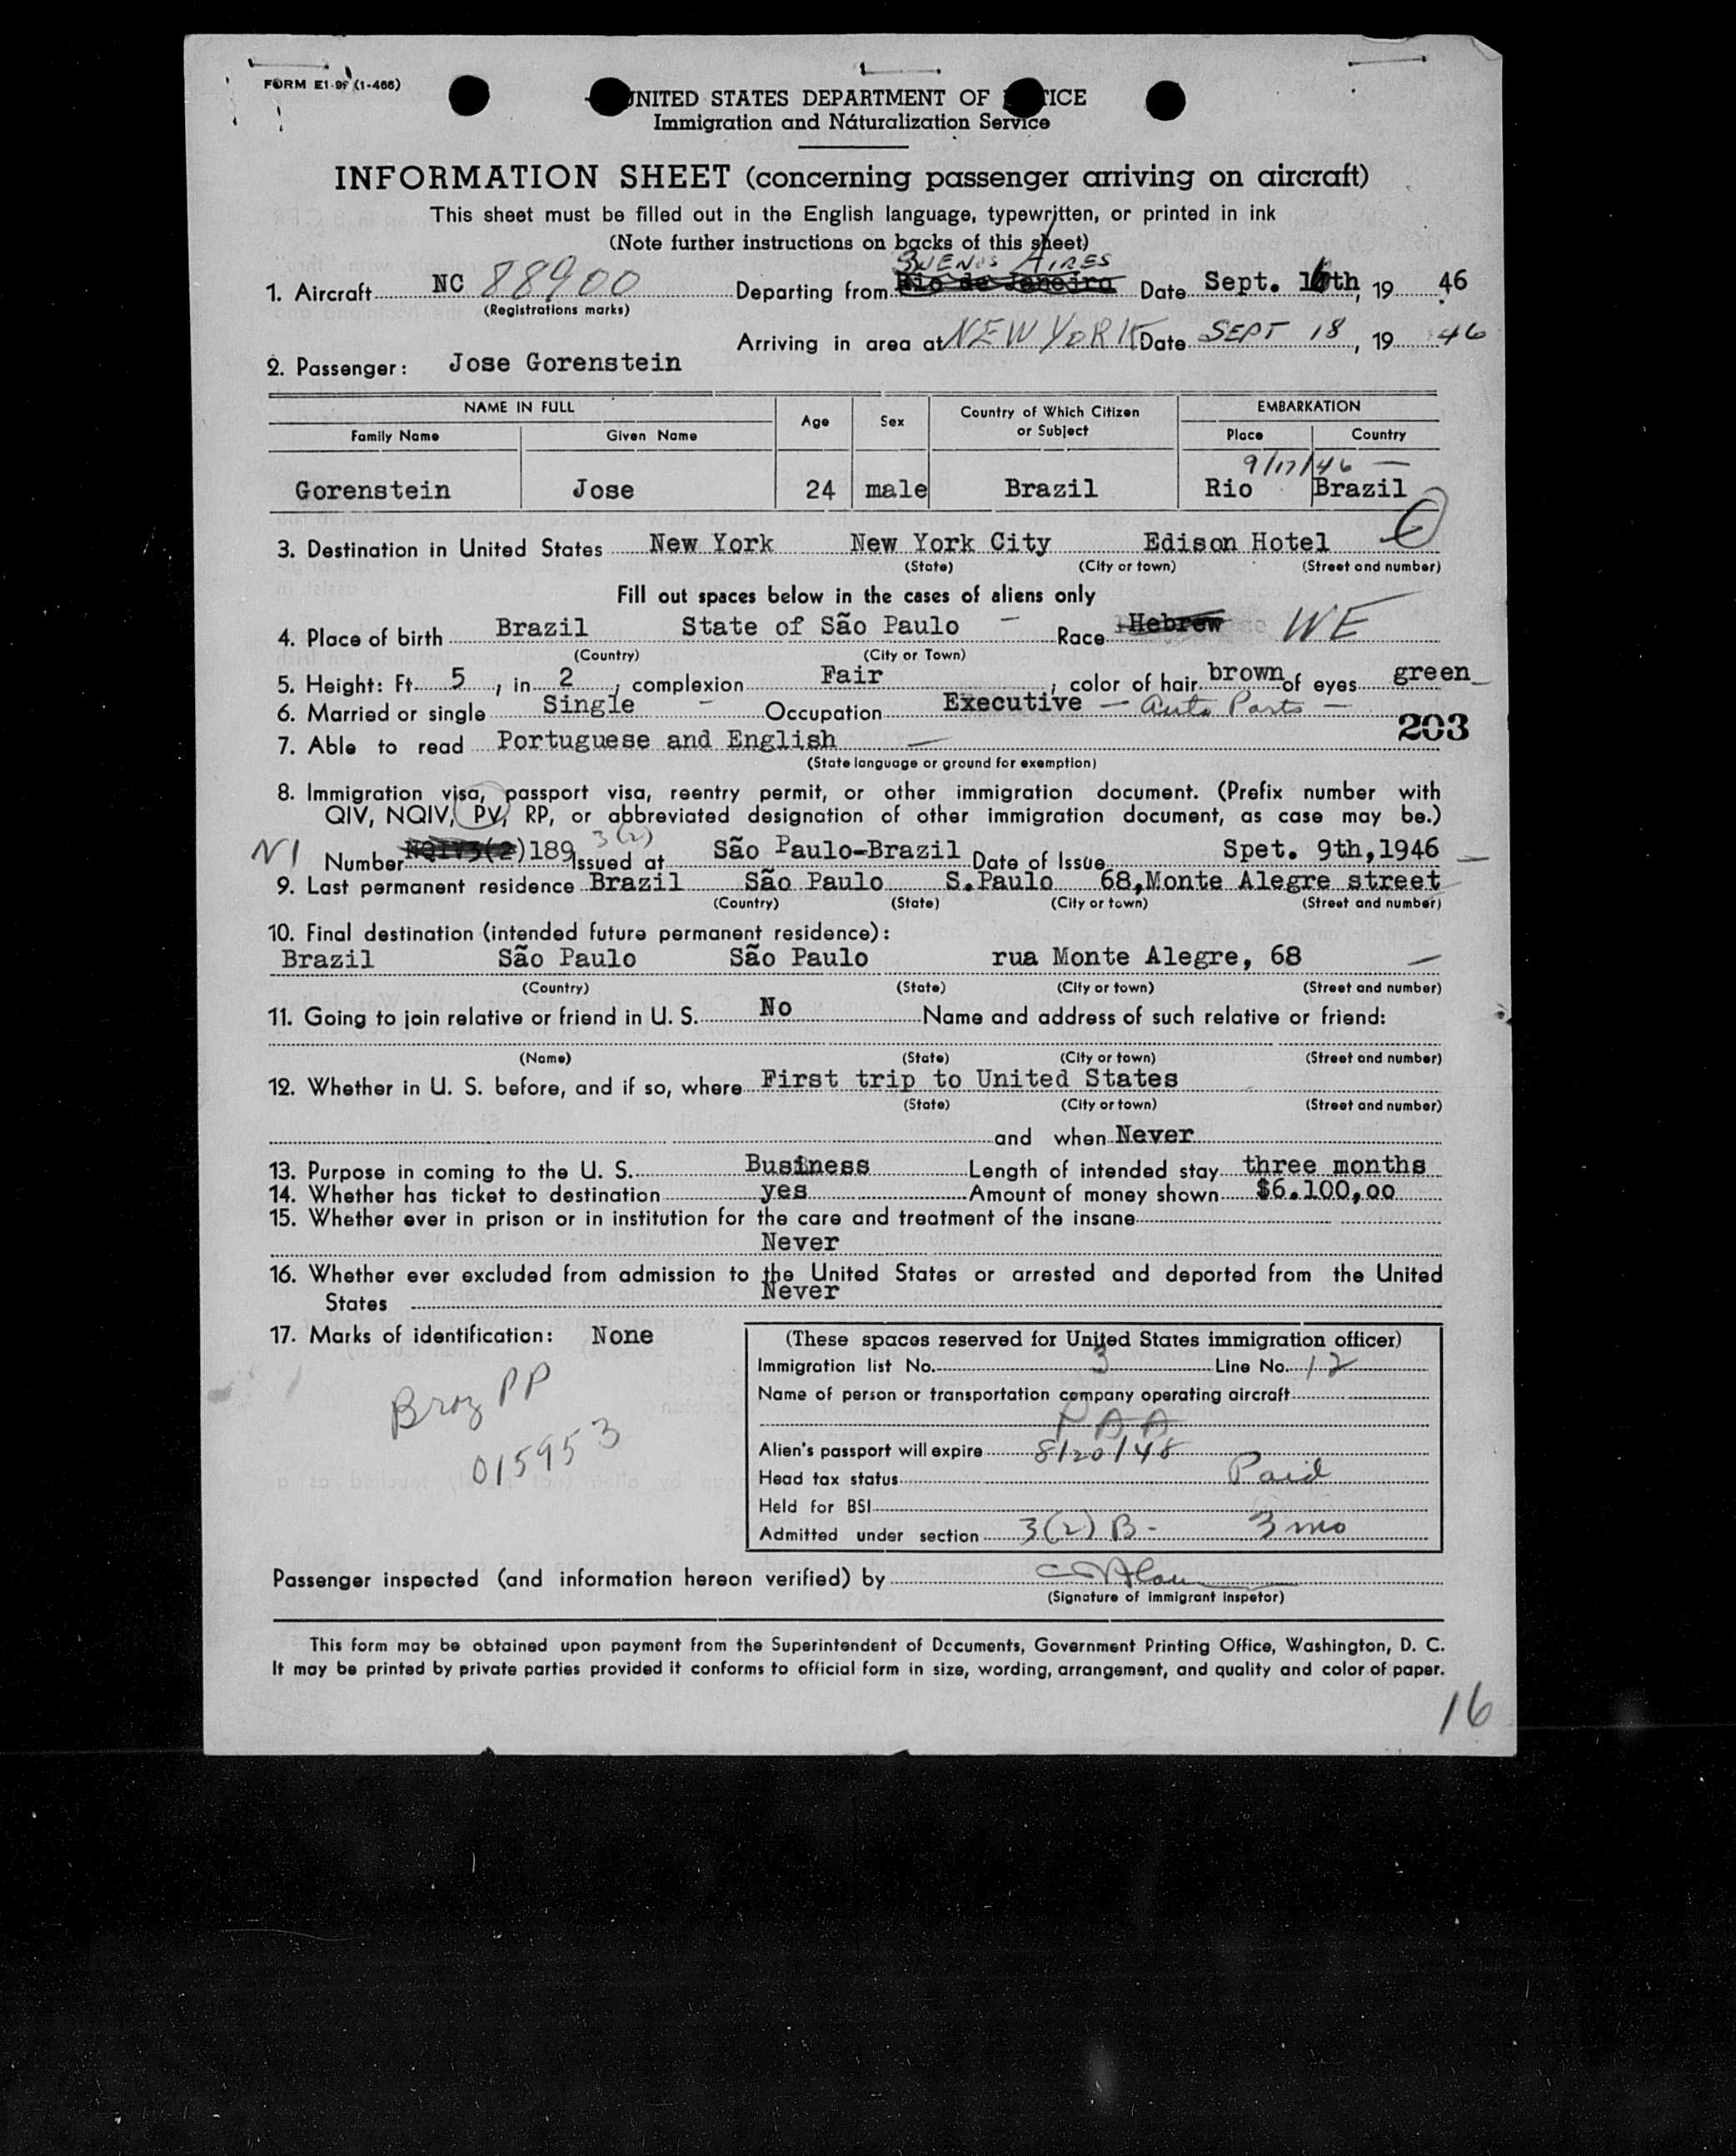 FORM E1-99 (1-466)
UNITED STATES DEPARTMENT OF JUSTICE
Immigration and Naturalization Service
INFORMATION SHEET (concerning passenger arriving on aircraft)
This sheet must be filled out in the English language, typewritten, or printed in ink
(Note further instructions on backs of this sheet)
BUENOS AIRES
1. Aircraft NC 88900 Departing from Rio de Janeiro Date Sept. 16th, 19 46
(Registrations marks)
Arriving in area at NEW YORK Date SEPT 18, 19 46
2. Passenger: Jose Gorenstein
NAME IN FULL Age Sex Country of Which Citizen or Subject EMBARKATION
Family Name Given Name Place Country
9/17/46 —
Gorenstein Jose 24 male Brazil Rio Brazil
3. Destination in United States New York New York City Edison Hotel
(State) (City or town) (Street and number)
Fill out spaces below in the cases of aliens only
4. Place of birth Brazil State of São Paulo — Race Hebrew WE
(Country) (City or Town)
5. Height: Ft. 5, in. 2, complexion Fair; color of hair brown of eyes green
6. Married or single Single - Occupation Executive — Auto Parts —
203
7. Able to read Portuguese and English —
(State language or ground for exemption)
8. Immigration visa, passport visa, reentry permit, or other immigration document. (Prefix number with
QIV, NQIV, PV, RP, or abbreviated designation of other immigration document, as case may be.)
3(2)
NI Number NQIV3(2)189 Issued at São Paulo-Brazil Date of Issue Spet. 9th,1946 —
9. Last permanent residence Brazil São Paulo S.Paulo 68,Monte Alegre street
(Country) (State) (City or town) (Street and number)
10. Final destination (intended future permanent residence):
Brazil São Paulo São Paulo rua Monte Alegre, 68 —
(Country) (State) (City or town) (Street and number)
11. Going to join relative or friend in U. S. No Name and address of such relative or friend:
(Name) (State) (City or town) (Street and number)
12. Whether in U. S. before, and if so, where First trip to United States
(State) (City or town) (Street and number)
and when Never
13. Purpose in coming to the U. S. Business Length of intended stay three months
14. Whether has ticket to destination yes Amount of money shown $6.100,oo
15. Whether ever in prison or in institution for the care and treatment of the insane
Never
16. Whether ever excluded from admission to the United States or arrested and deported from the United
States Never
17. Marks of identification: None
Braz PP
015953
(These spaces reserved for United States immigration officer)
Immigration list No. 3 Line No. 12
Name of person or transportation company operating aircraft
PAA
Alien's passport will expire 8/20/48
Head tax status Paid
Held for BSI
Admitted under section 3(2) B- 3 mo
Passenger inspected (and information hereon verified) by
(Signature of immigrant inspetor)
This form may be obtained upon payment from the Superintendent of Documents, Government Printing Office, Washington, D. C.
It may be printed by private parties provided it conforms to official form in size, wording, arrangement, and quality and color of paper.
16